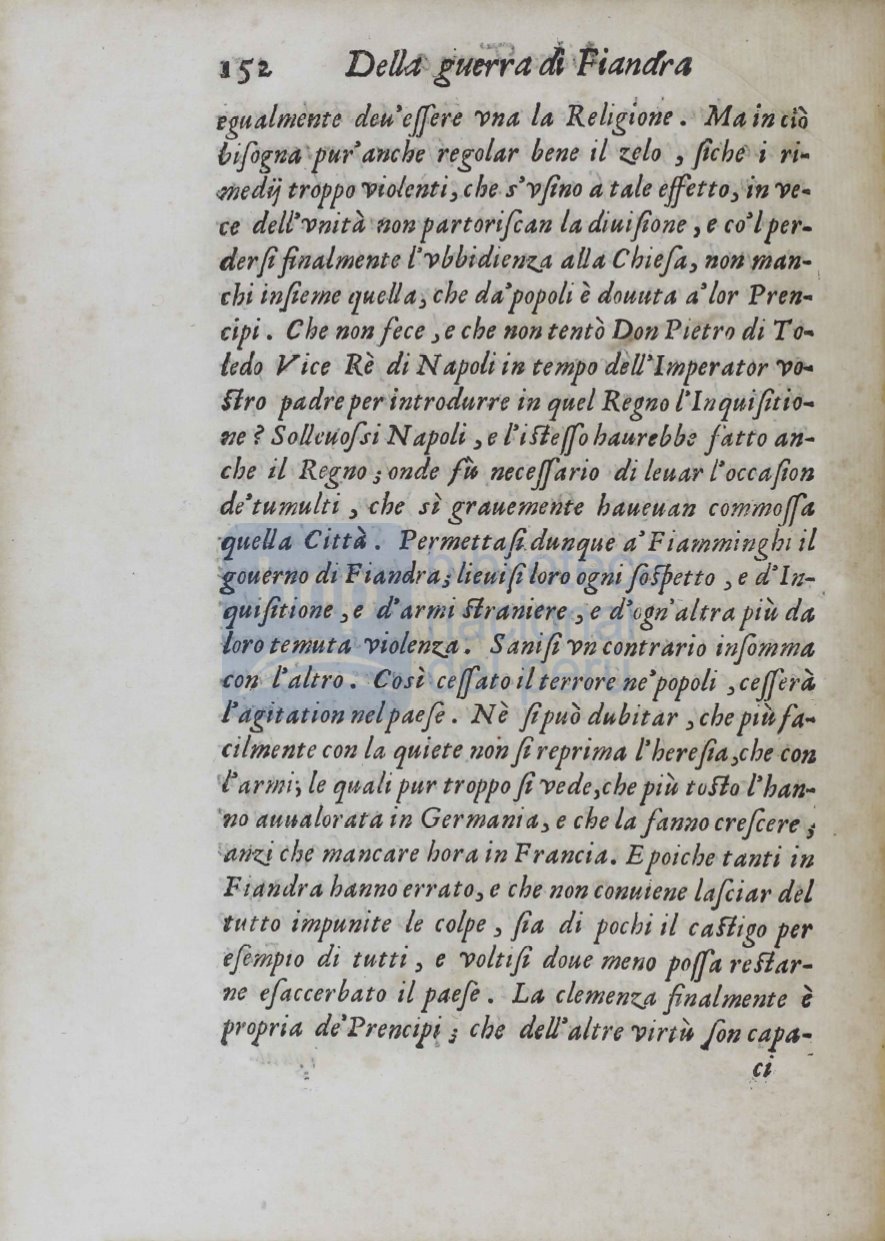 152 Della guerra di Fiandra
egualmente deu'eſſere vna la Religione. Ma in ciò
biſogna pur'anche regolar bene il zelo, ſiche i ri-
medij troppo violenti, che s'vſino a tale effetto, in ve-
ce dell'vnità non partoriſcan la diuiſione, e co'l per-
derſi finalmente l'vbbidienza alla Chieſa, non man-
chi inſieme quella, che da'popoli è douuta a'lor Pren-
cipi. Che non fece, e che non tentò Don Pietro di To-
ledo Vice Rè di Napoli in tempo dell'Imperator vo-
ſtro padre per introdurre in quel Regno l'Inquiſitio-
ne? Solleuoſsi Napoli, e l'iſteſſo haurebbe fatto an-
che il Regno; onde fù neceſſario di leuar l'occaſion
de'tumulti, che sì grauemente haueuan commoſſa
quella Città. Permettaſi dunque a'Fiamminghi il
gouerno di Fiandra; lieuiſi loro ogni ſoſpetto, e d'In-
quiſitione, e d'armi ſtraniere, e d'ogn'altra più da
loro temuta violenza. Saniſi vn contrario inſomma
con l'altro. Così ceſſato il terrore ne'popoli, ceſſerà
l'agitation nel paeſe. Nè ſi può dubitar, che più fa-
cilmente con la quiete non ſi reprima l'hereſia, che con
l'armi; le quali pur troppo ſi vede, che più toſto l'han-
no auualorata in Germania, e che la fanno creſcere;
anzi che mancare hora in Francia. E poiche tanti in
Fiandra hanno errato, e che non conuiene laſciar del
tutto impunite le colpe, ſia di pochi il caſtigo per
eſempio di tutti, e voltiſi doue meno poſſa reſtar-
ne eſaccerbato il paeſe. La clemenza finalmente è
propria de'Prencipi; che dell'altre virtù ſon capa-
ci